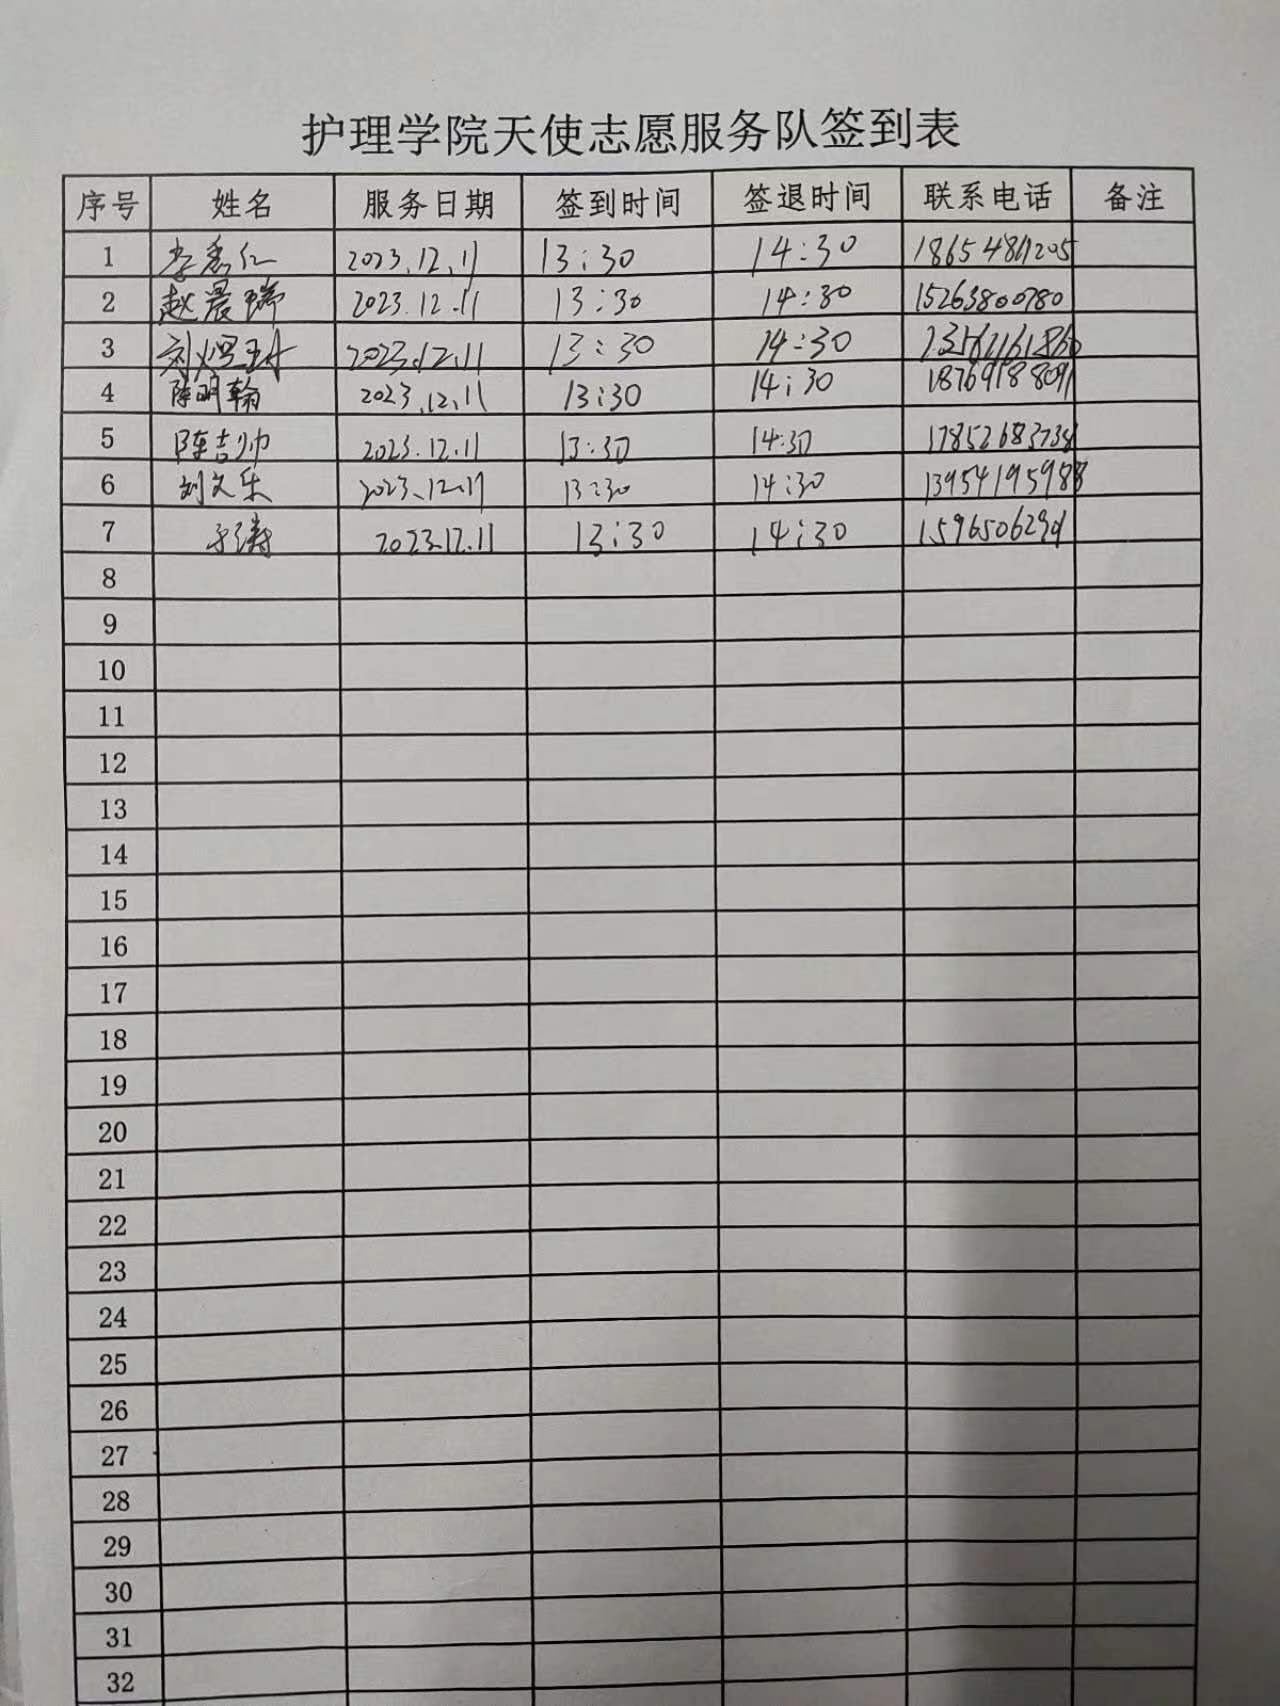 护理学院天使志愿服务队签到表
序号 姓名 服务日期 签到时间 签退时间 联系电话 备注
1 李惠仁 2023.12.11 13:30 14:30
2 赵晨瑞 2023.12.11 13:30 14:30 15263800780
3 2023.12.11 13:30 14:30
4 陈明翰 2023.12.11 13:30 14:30 18769188091
5 陈吉帅 2023.12.11 13:30 14:30
6 刘文乐 2023.12.11 13:30 14:30 13954195988
7 于涛 2023.12.11 13:30 14:30
8
9
10
11
12
13
14
15
16
17
18
19
20
21
22
23
24
25
26
27
28
29
30
31
32